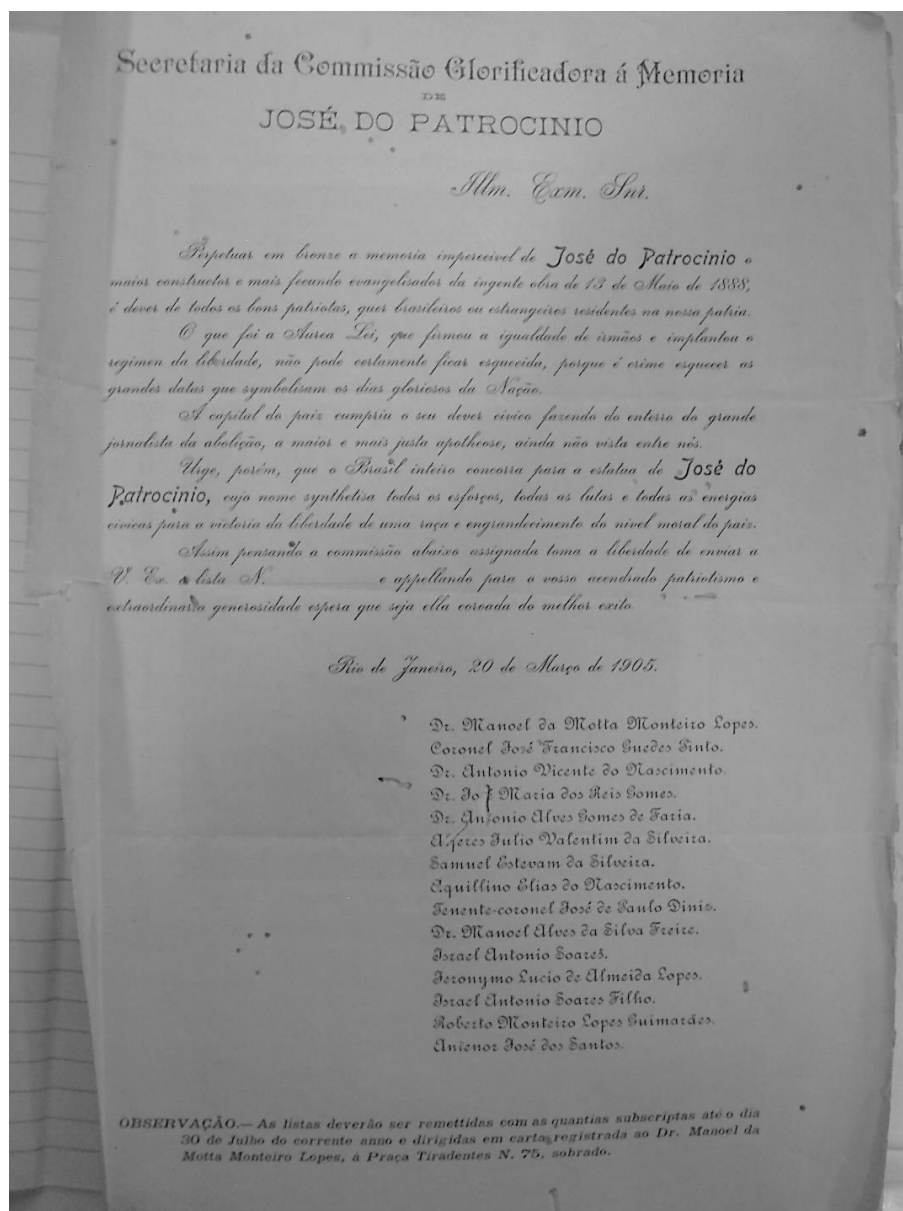 Secretaria da Commissão Glorificadora á Memoria
DE
JOSÉ DO PATROCINIO
Illm. Exm. Snr.
Perpetuar em bronze a memoria imperecivel de José do Patrocinio o
maior constructor e mais fecundo evangelisador da ingente obra de 13 de Maio de 1888,
é dever de todos os bons patriotas, quer brasileiros ou estrangeiros residentes na nossa patria.
O que foi a Aurea Lei, que firmou a igualdade de irmãos e implantou o
regimen da liberdade, não pode certamente ficar esquecida, porque é crime esquecer as
grandes datas que symbolisam os dias gloriosos da Nação.
A capital do paiz cumpriu o seu dever civico fazendo do enterro do grande
jornalista da abolição, a maior e mais justa apotheose, ainda não vista entre nós.
Urge, porém, que o Brasil inteiro concorra para a estatua de José do
Patrocinio, cujo nome synthetisa todos os esforços, todas as lutas e todas as energias
civicas para a victoria da liberdade de uma raça e engrandecimento do nivel moral do paiz.
Assim pensando a commissão abaixo assignada toma a liberdade de enviar a
V. Ex. a lista N. e appellando para o vosso acendrado patriotismo e
extraordinaria generosidade espera que seja ella coroada do melhor exito.
Rio de Janeiro, 20 de Março de 1905.
Dr. Manoel da Motta Monteiro Lopes.
Coronel José Francisco Guedes Pinto.
Dr. Antonio Vicente do Nascimento.
Dr. José Maria dos Reis Gomes.
Dr. Antonio Alves Gomes de Faria.
Alferes Julio Valentim da Silveira.
Samuel Estevam da Silveira.
Aquillino Elias do Nascimento.
Tenente-coronel José de Paulo Diniz.
Dr. Manoel Alves da Silva Freire.
Israel Antonio Soares.
Jeronymo Lucio de Almeida Lopes.
Israel Antonio Soares Filho.
Roberto Monteiro Lopes Guimarães.
Antenor José dos Santos.
OBSERVAÇÃO.— As listas deverão ser remettidas com as quantias subscriptas até o dia
30 de Julho do corrente anno e dirigidas em carta registrada ao Dr. Manoel da
Motta Monteiro Lopes, á Praça Tiradentes N. 75, sobrado.